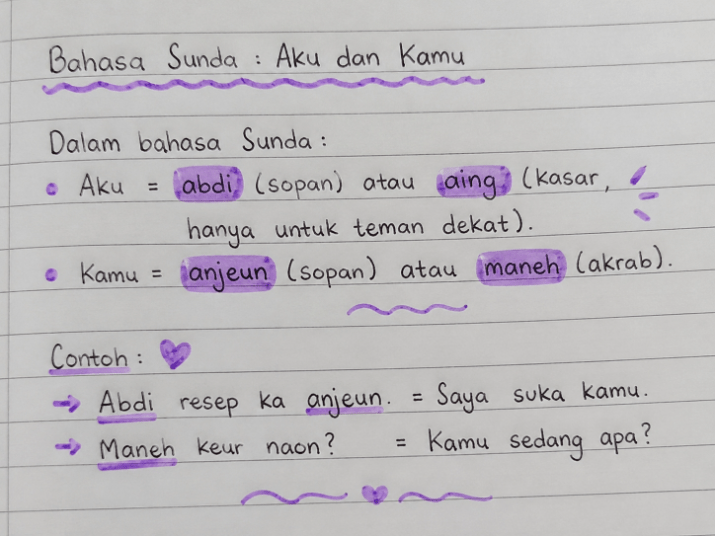 Bahasa Sunda : Aku dan Kamu
Dalam bahasa Sunda :
• Aku = abdi (sopan) atau aing (kasar,
hanya untuk teman dekat).
• Kamu = anjeun (sopan) atau maneh (akrab).
Contoh :
→ Abdi resep ka anjeun. = Saya suka kamu.
→ Maneh keur naon? = Kamu sedang apa?